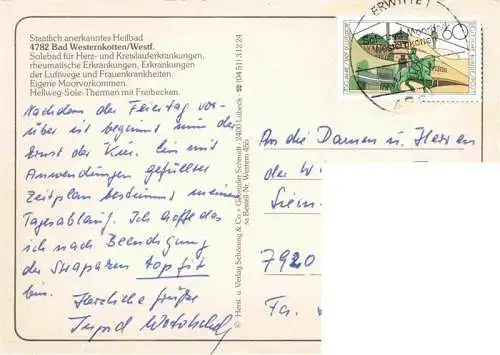 Staatlich anerkanntes Heilbad
4782 Bad Westernkotten/Westf.
Solebad für Herz- und Kreislauferkrankungen,
rheumatische Erkrankungen, Erkrankungen
der Luftwege und Frauenkrankheiten.
Eigene Moorvorkommen.
Hellweg-Sole-Thermen mit Freibecken.
Nachdem der Feiertag vor-
über ist beginnt nun der
Ernst der Kur. Ein mit
Anwendungen gefüllter
Zeitplan bestimmt meinen
Tagesablauf. Ich hoffe das
ich nach Beendigung
der Strapazen top fit
bin. Herzliche Grüße
Ingrid
Herst. u. Verlag Schöning & Co + Gebrüder Schmidt · 2400 Lübeck ☎ (04 51) 3 12 24
Bestell-Nr. Western 455
ERWITTE 1
60
An die Damen u. Herren
der W
7920
Fa.